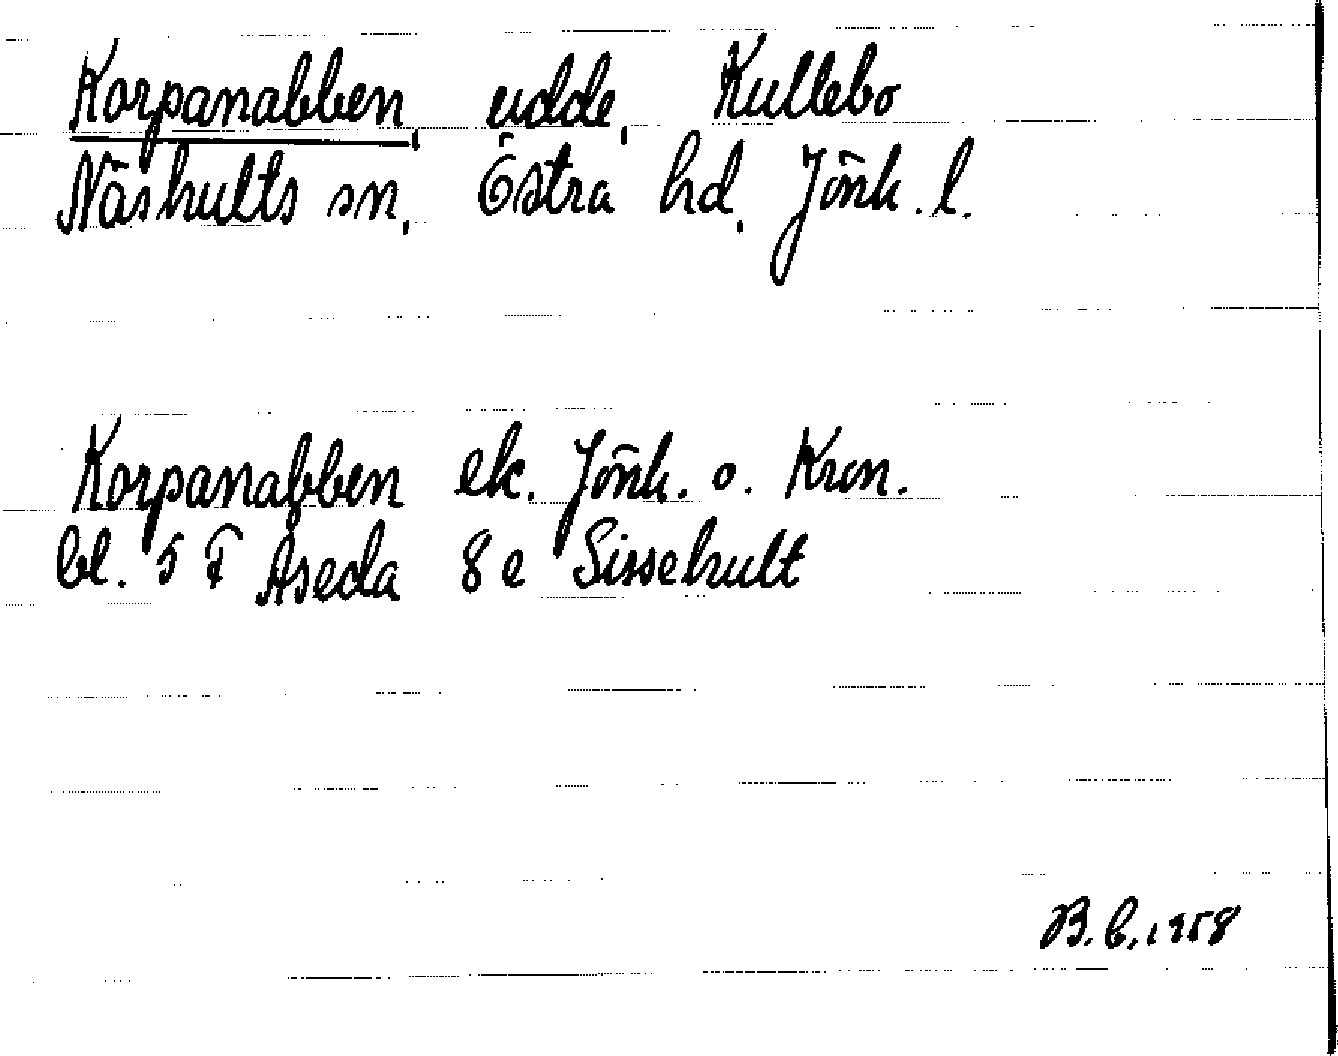 Korpanabben, udde, Kullebo
Näshults sn, Östra hd, Jönk. l.
Korpanabben ek. Jönk. o. Kron.
bl. 5 F Åseda 8 e Sissehult
B. C. 1958